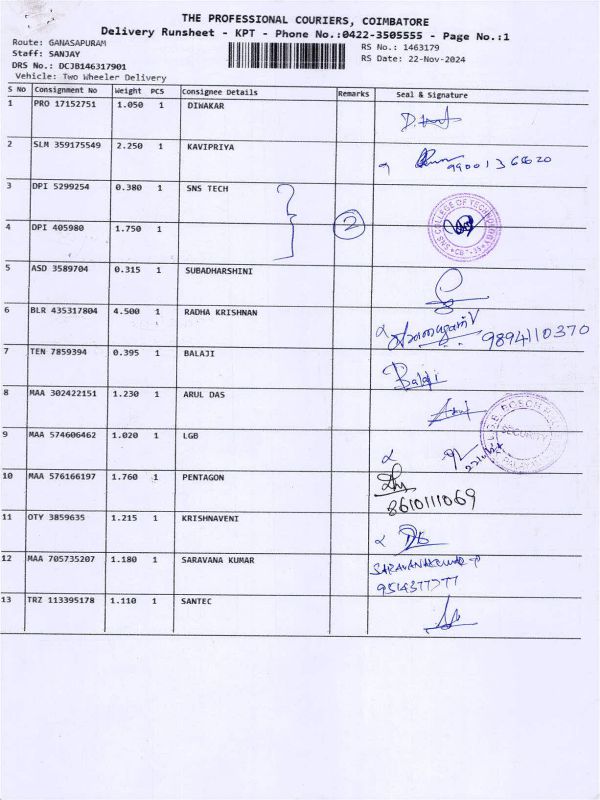 THE PROFESSIONAL COURIERS, COIMBATORE
Delivery Runsheet - KPT - Phone No.:0422-3505555 - Page No.:1
Route: GANASAPURAM
RS No.: 1463179
Staff: SANJAY
RS Date: 22-Nov-2024
DRS No.: DCJB146317901
Vehicle: Two Wheeler Delivery
S No Consignment No Weight PCS Consignee Details Remarks Seal & Signature
1 PRO 17152751 1.050 1 DIWAKAR
2 SLM 359175549 2.250 1 KAVIPRIYA
3 DPI 5299254 0.380 1 SNS TECH
2
4 DPI 405980 1.750 1
5 ASD 3589704 0.315 1 SUBADHARSHINI
6 BLR 435317804 4.500 1 RADHA KRISHNAN
9894110370
7 TEN 7859394 0.395 1 BALAJI
Balaji
8 MAA 302422151 1.230 1 ARUL DAS
9 MAA 574606462 1.020 1 LGB
SECURITY
10 MAA 576166197 1.760 1 PENTAGON
8610111069
11 OTY 3859635 1.215 1 KRISHNAVENI
12 MAA 705735207 1.180 1 SARAVANA KUMAR
13 TRZ 113395178 1.110 1 SANTEC